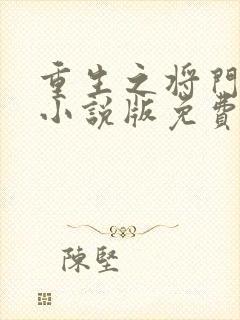 重生之将門
小説版免費
陳堅